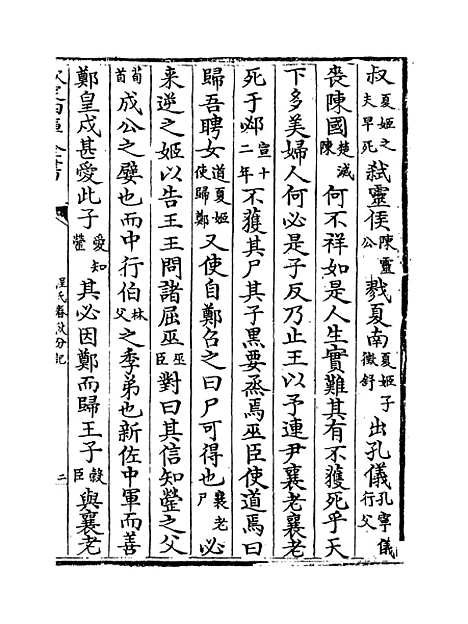 叔夏姬之夫早死弑靈侯陳靈公戮夏南夏姬子徵舒出孔儀孔寧儀行父
喪陳國楚滅陳何不祥如是人生實難其有不獲死乎天
下多美婦人何必是子反乃止王以予連尹襄老襄老
死于邲宣十二年不獲其尸其子黑要烝焉巫臣使道焉曰
歸吾聘女道夏姬使歸鄭又使自鄭召之曰尸可得也襄老尸必
来逆之姬以告王王問諸屈巫巫臣對曰其信知罃之父
荀首成公之嬖也而中行伯林父之季弟也新佐中軍而善
鄭皇戌甚愛此子愛知罃其必因鄭而歸王子穀臣與襄老
程氏春秋分記 二